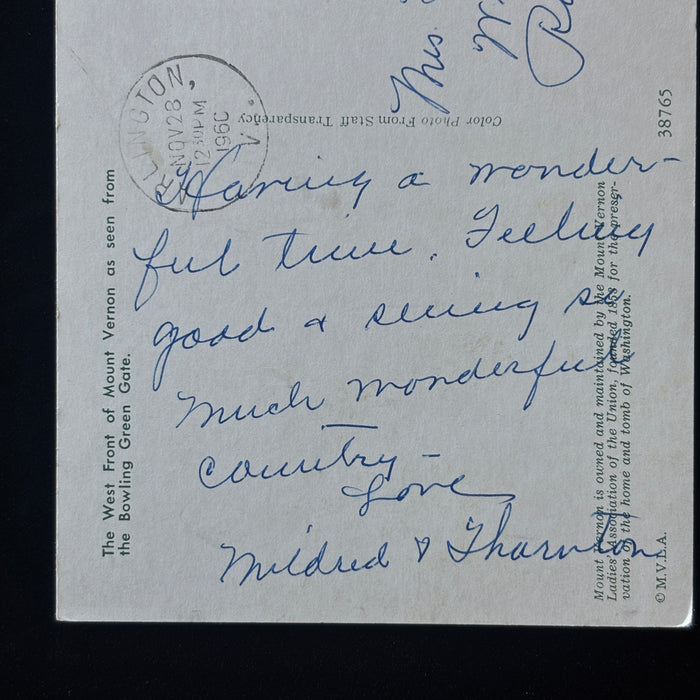 Mrs.
ARLINGTON,
NOV 28
12 30 PM
1960
VA.
Color Photo From Staff Transparency
38765
Having a wonder-
ful time. Feeling
good & seeing so
much wonderful
country —
Love
Mildred & Thornton
The West Front of Mount Vernon as seen from
the Bowling Green Gate.
Mount Vernon is owned and maintained by the Mount Vernon
Ladies' Association of the Union, founded 1858 for the preser-
vation of the home and tomb of Washington.
© M.V.L.A.